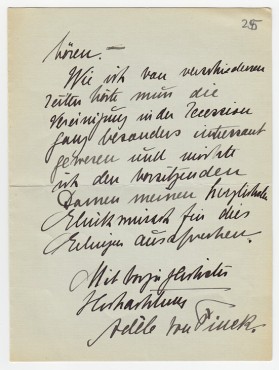 285
hören. —
Wie ich von verschiedenen
Seiten hörte muss die
Vereinigung in der Secession
ganz besonders interessant
gewesen und möchte
ich den vorsitzenden
Damen meinen herzlichsten
Glückwunsch für dies
Gelingen aussprechen.
Mit vorzüglichster
Hochachtung
Adèle von Finck.